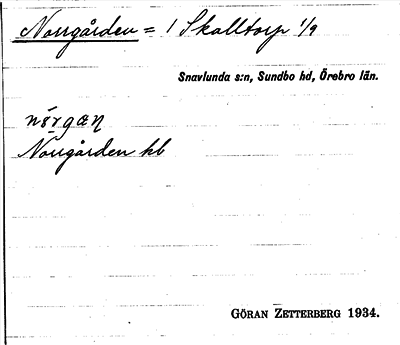 Norrgården = 1 Skalltorp 1/9
Snavlunda s:n, Sundbo hd, Örebro län.
Norrgården hb
GÖRAN ZETTERBERG 1934.